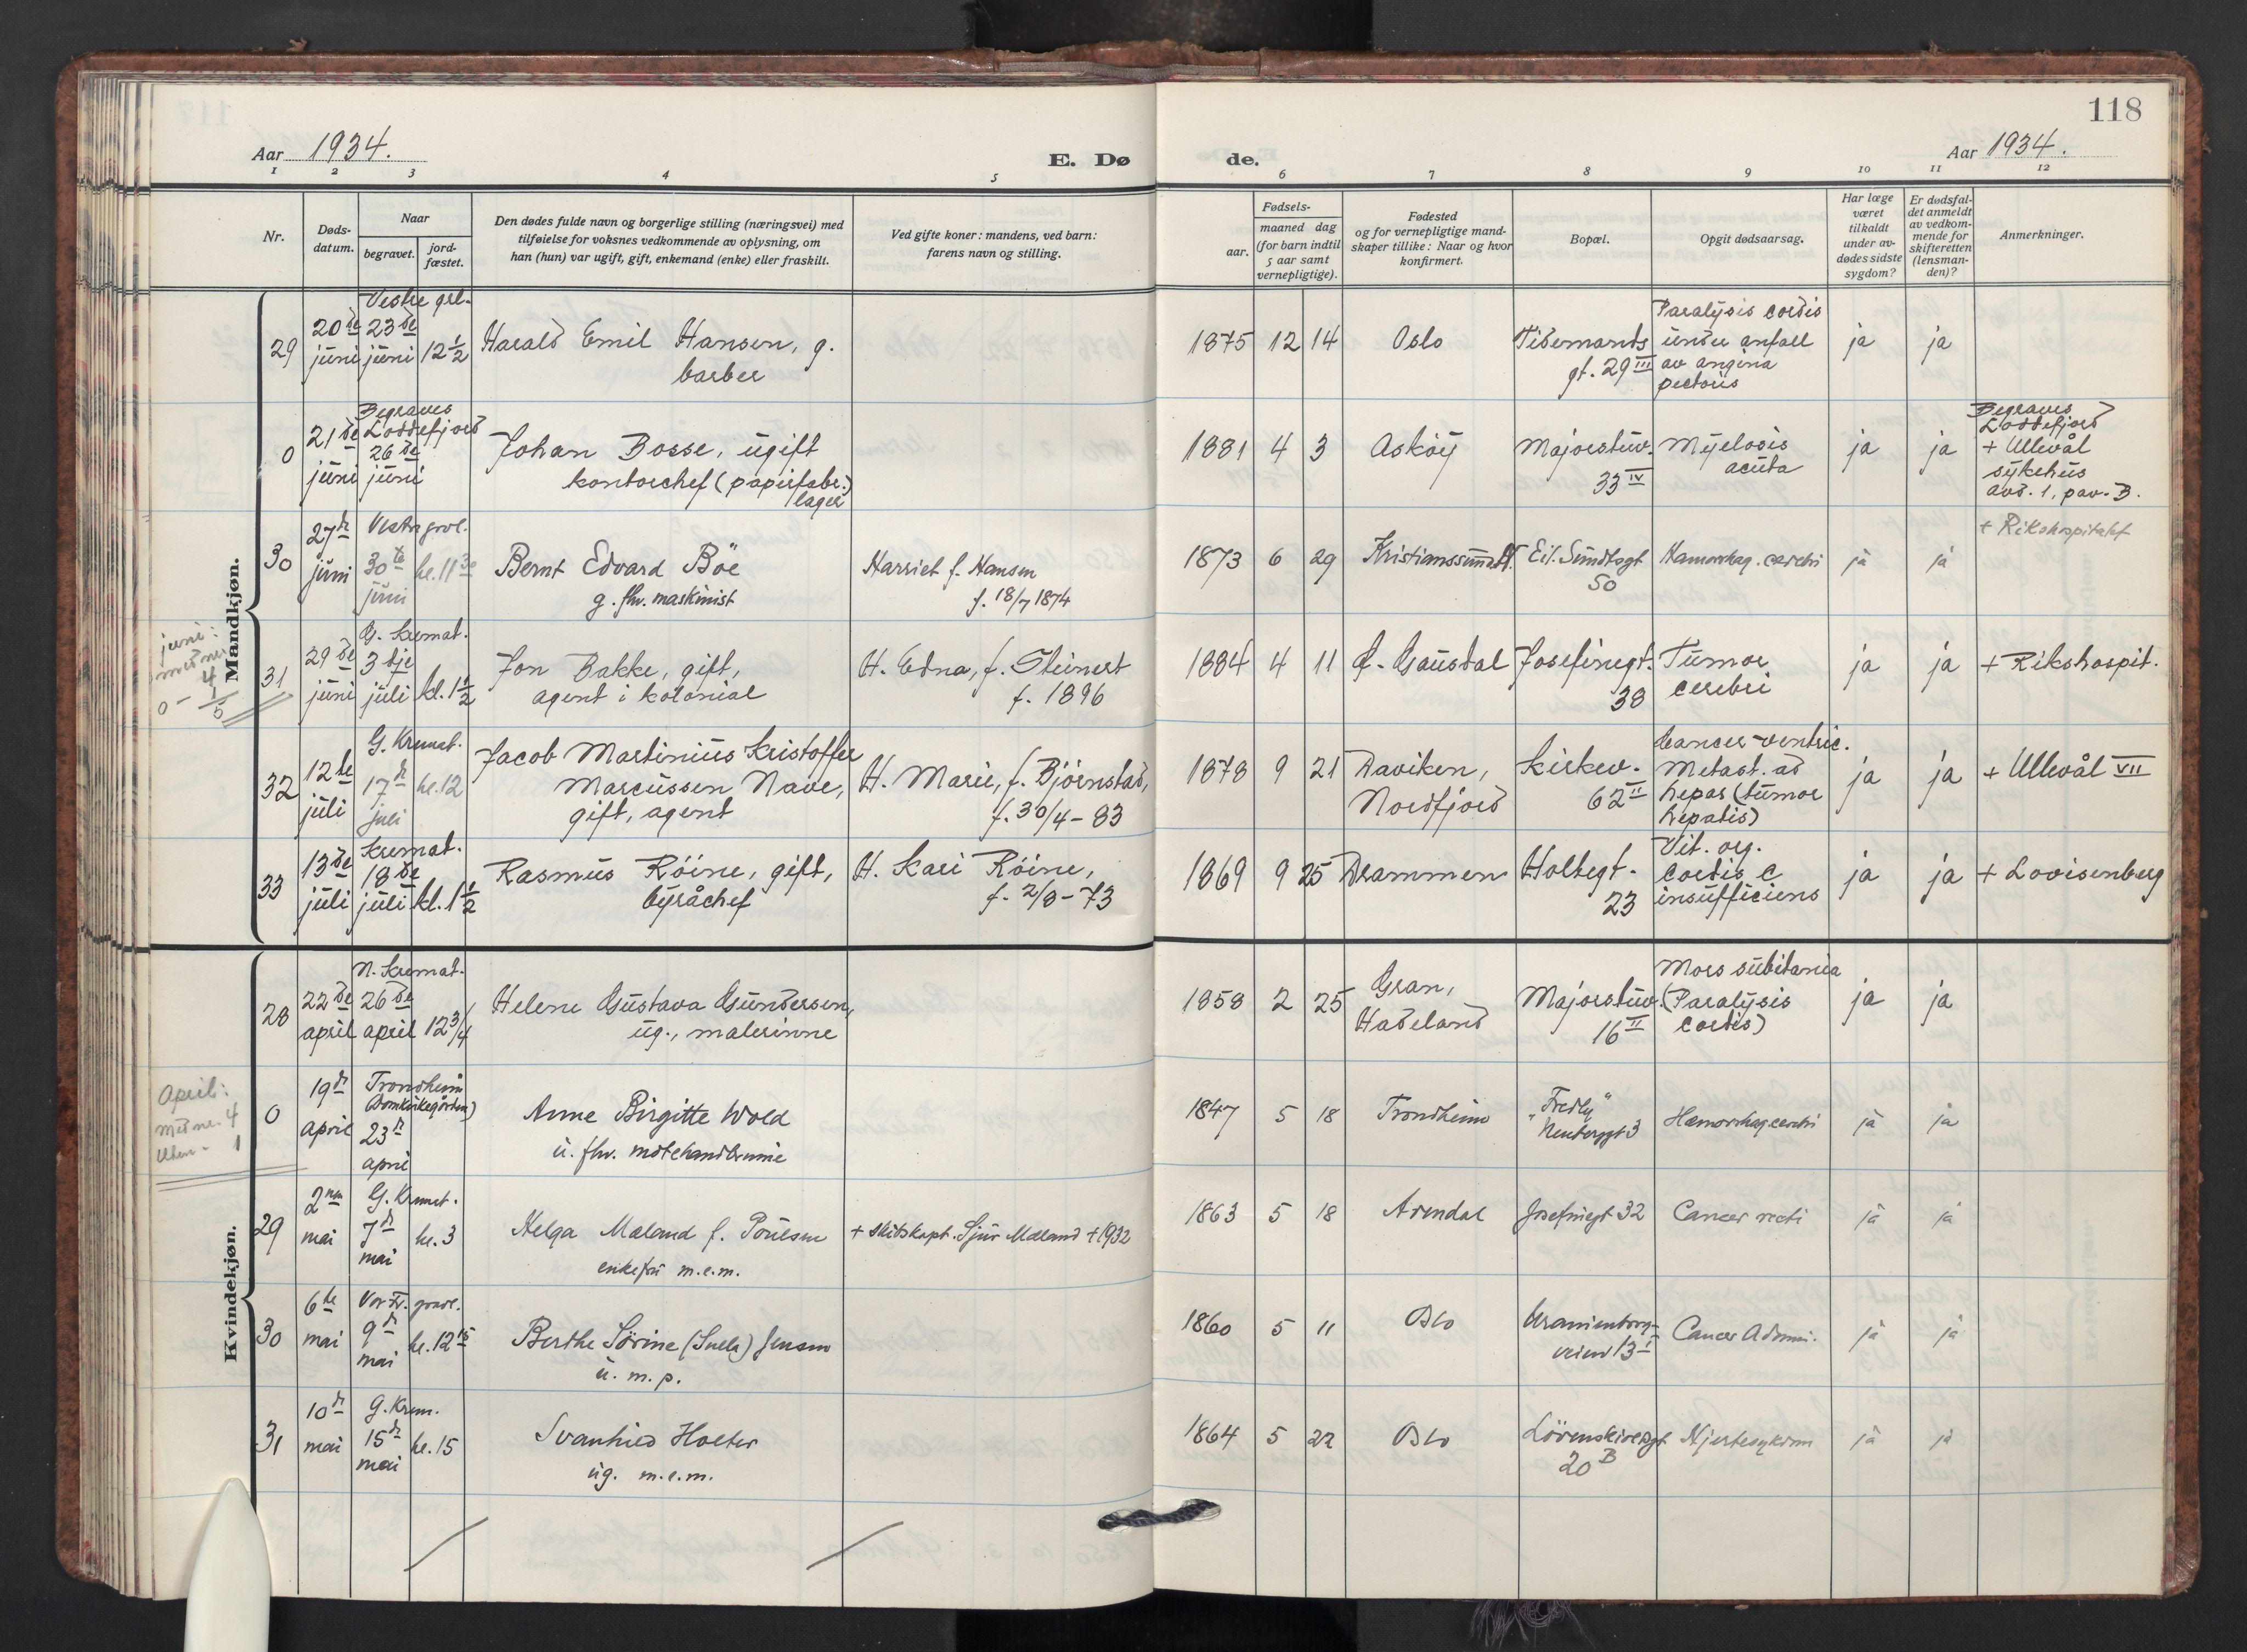 118
Aar 1934.
E. Dø
de.
Aar 1934.
1 2 3 4 5 6 7 8 9 10 11 12
Nr.
Døds-
datum.
Naar
begravet.
jord-
fæstet.
Den dødes fulde navn og borgerlige stilling (næringsvei) med
tilføielse for voksnes vedkommende av oplysning, om
han (hun) var ugift, gift, enkemand (enke) eller fraskilt.
Ved gifte koner: mandens, ved barn:
farens navn og stilling.
Fødsels-
aar.
maaned dag
(for barn indtil
5 aar samt
vernepligtige).
Fødested
og for vernepligtige mand-
skaper tillike: Naar og hvor
konfirmert.
Bopæl.
Opgit dødsaarsag.
Har læge
været
tilkaldt
under av-
dødes sidste
sygdom?
Er dødsfal-
det anmeldt
av vedkom-
mende for
skifteretten
(lensman-
den)?
Anmerkninger.
Mandkjøn.
29
20de
juni
Vestre grl.
23de
juni
12½
Harald Emil Hansen, g.
barber
1875 12 14
Oslo
Tidemands
gt. 29 III
Paralysis cordis
under anfall
av angina
pectoris
ja
ja
0
21de
juni
Begraves
Loddefjord
26de
juni
Johan Bosse, ugift
kontorchef (papirfabr.)
lager
1881 4 3
Askøy
Majorstuv.
33 IV
Myelosis
acuta
ja
ja
Begraves
Loddefjord
+ Ullevål
sykehus
avd. 1, pav. B.
30
27de
juni
Vestre gravl.
30te
juni
kl. 11 30
Bernt Edvard Böe
g. fhv. maskinist
Harriet f. Hansen
f. 18/7 1874
1873 6 29
Kristianssund N.
Eil. Sundtsgt
50
Hæmorrhag. cerebri
ja
ja
+ Rikshospitalet
juni:
med nr
4
0 - 1
5
31
29de
juni
G. Kremat.
3dje
juli
kl. 1½
Jon Bakke, gift,
agent i kolonial
H. Edna, f. Steinert
f. 1896
1884 4 11
Ø. Gausdal
Josefinegt.
38
Tumor
cerebri
ja
ja
+ Rikshospit.
32
12te
juli
G. Kremat.
17de
juli
kl. 12
Jacob Martinius Kristoffer
Marcussen Nave,
gift, agent
H. Marie, f. Bjørnstad,
f. 30/4 - 83
1878 9 21
Daviken,
Nordfjord
Kirkev.
62 II
Cancer ventric.
Metast. ad
hepar (tumor
hepatis)
ja
ja
+ Ullevål VII
33
13de
juli
Kremat.
18de
juli
kl. 1½
Rasmus Röine, gift,
byråchef
H. Kari Röine,
f. 2/8 - 73
1869 9 25
Drammen
Holtegt.
23
Vit. org.
cordis c
insufficiens
ja
ja
+ Lovisenberg
Kvindekjøn.
28
22de
april
N. Kremat.
26de
april
12 3/4
Helene Gustava Gundersen,
ug., malerinne
1858 2 25
Gran,
Hadeland
Majorstuv.
16 II
Mors subitania
(Paralysis
cordis)
ja
ja
April:
med nr. 4
Uten - 1
0
19de
april
Trondheim
(Domkirkegården)
23de
april
Anne Birgitte Wold
u. fhv. motehandlerinne
1847 5 18
Trondheim
"Fredly"
Neuberggt 3
Hæmorrhag cerebri
ja
ja
29
2nen
mai
G. Kremat.
7de
mai
kl. 3
Helga Maland f. Poulsen
enkefru m.e.m.
+ skibskapt. Sjur Maland +1932
1863 5 18
Arendal
Josefinegt 32
Cancer recti
ja
ja
30
6te
mai
Vor Fr. gravl.
9de
mai
kl. 12 15
Berthe Sörine (Snella) Jensen
u. m. p.
1860 5 11
Oslo
Uranienborg-
veien 13 I
Cancer Adomi.
ja
ja
31
10de
mai
G. Krem.
15de
mai
kl. 15
Svanhild Holter
ug. m.e.m.
1864 5 22
Oslo
Lörenskioldsgt
20 B
Hjertesykdom
ja
ja